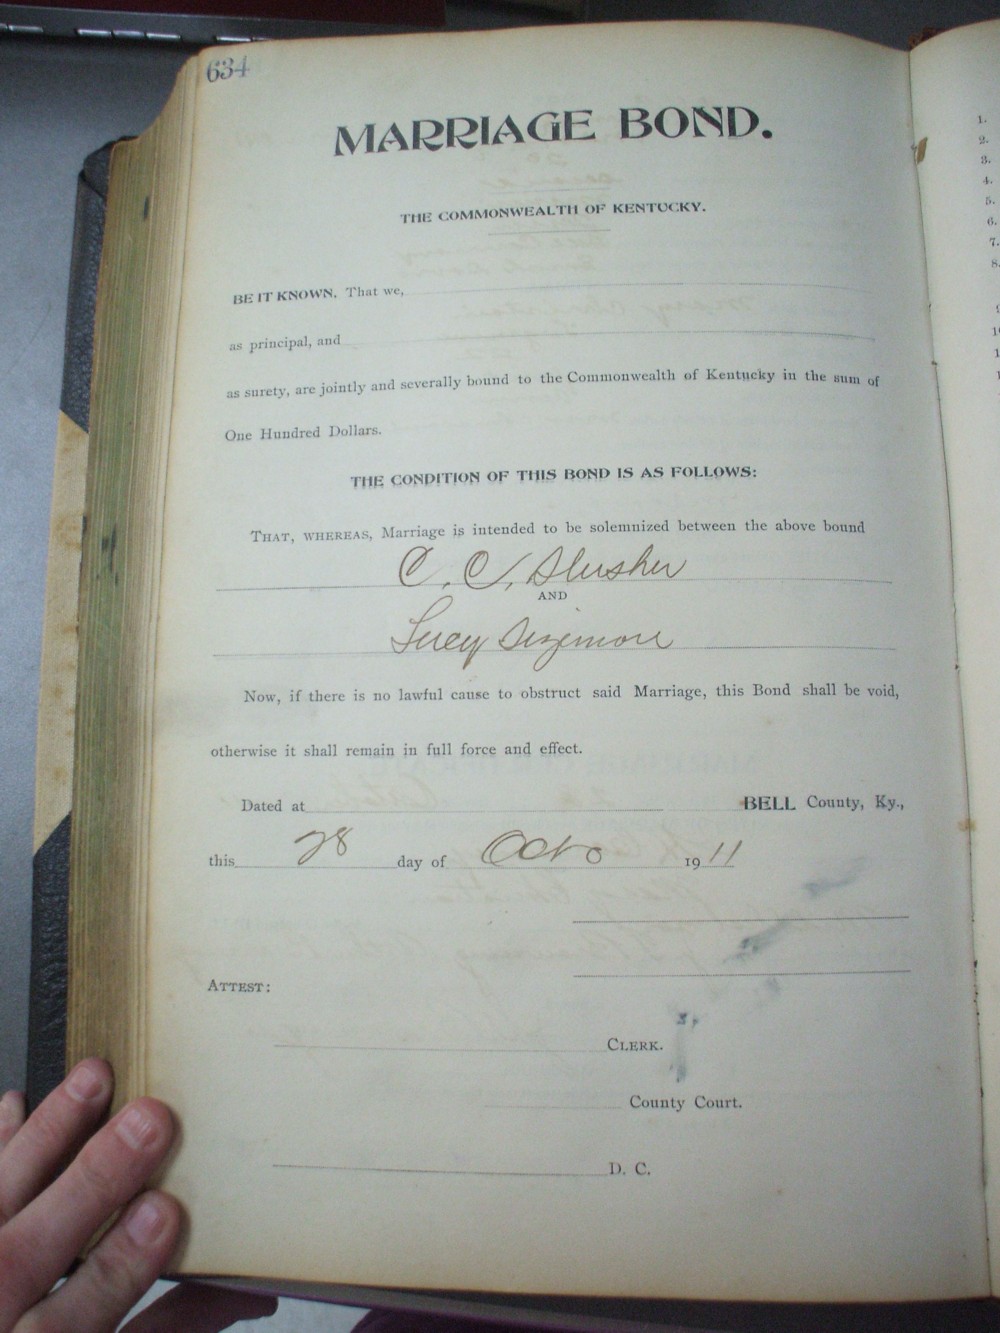 634
MARRIAGE BOND.
THE COMMONWEALTH OF KENTUCKY.
BE IT KNOWN, That we,
as principal, and
as surety, are jointly and severally bound to the Commonwealth of Kentucky in the sum of
One Hundred Dollars.
THE CONDITION OF THIS BOND IS AS FOLLOWS:
THAT, WHEREAS, Marriage is intended to be solemnized between the above bound
C. C. Slusher
AND
Lucy Sizemore
Now, if there is no lawful cause to obstruct said Marriage, this Bond shall be void,
otherwise it shall remain in full force and effect.
Dated at BELL County, Ky.,
this 28 day of Octo 1911
ATTEST:
CLERK.
County Court.
D. C.
1.
2.
3.
4.
5.
6.
7.
8.